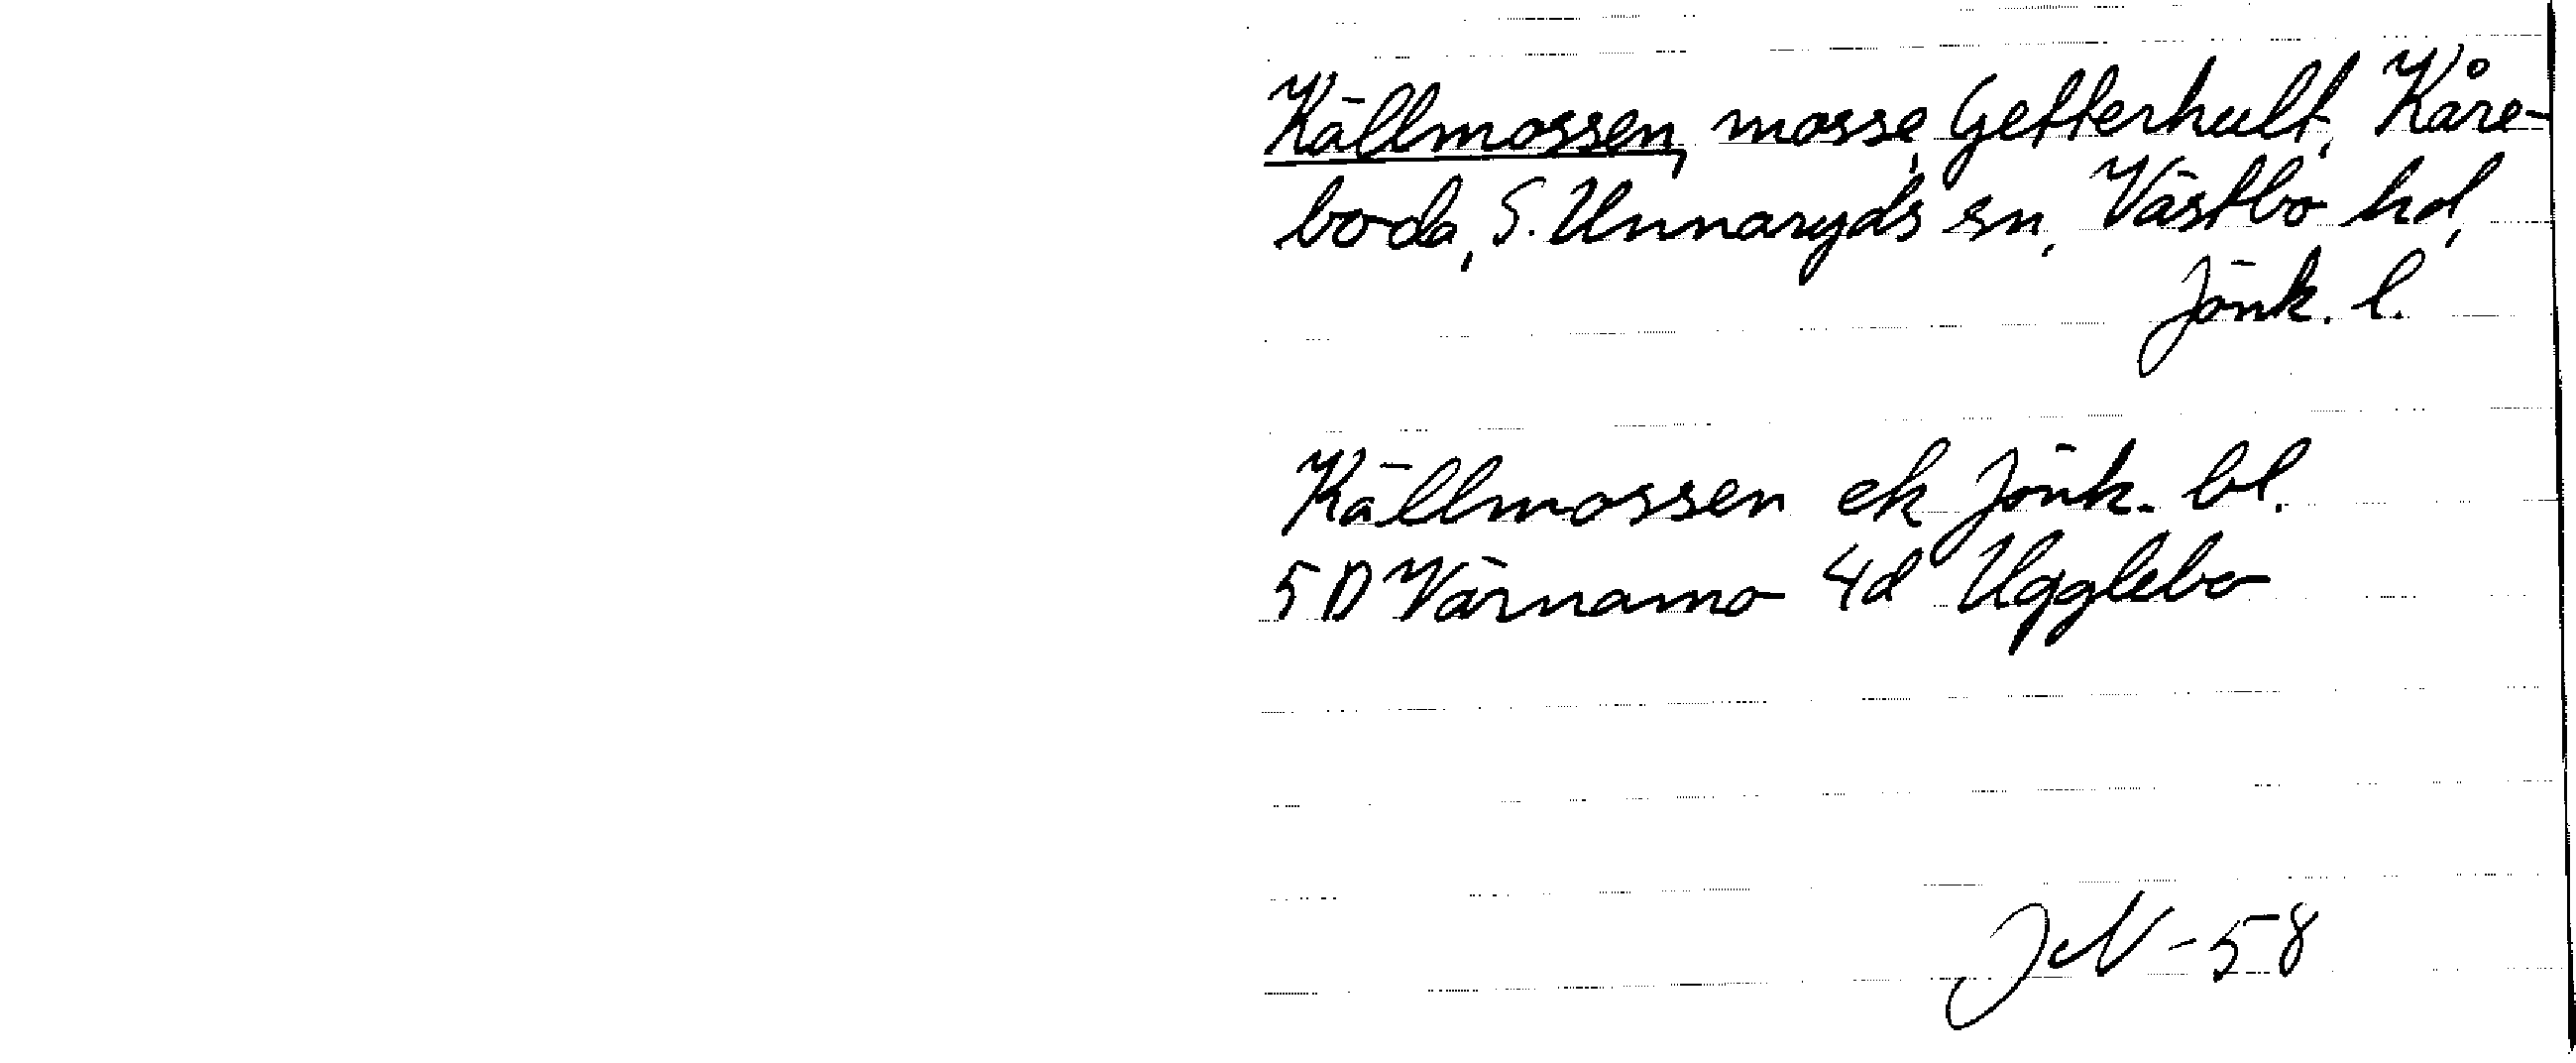 Källmossen, mosse, Getterhult, Kåre-
boda, S. Unnaryds sn, Västbo hd,
Jönk. l.
Källmossen ek Jönk. bl.
5D Värnamo 4d Ugglebo
JN -58